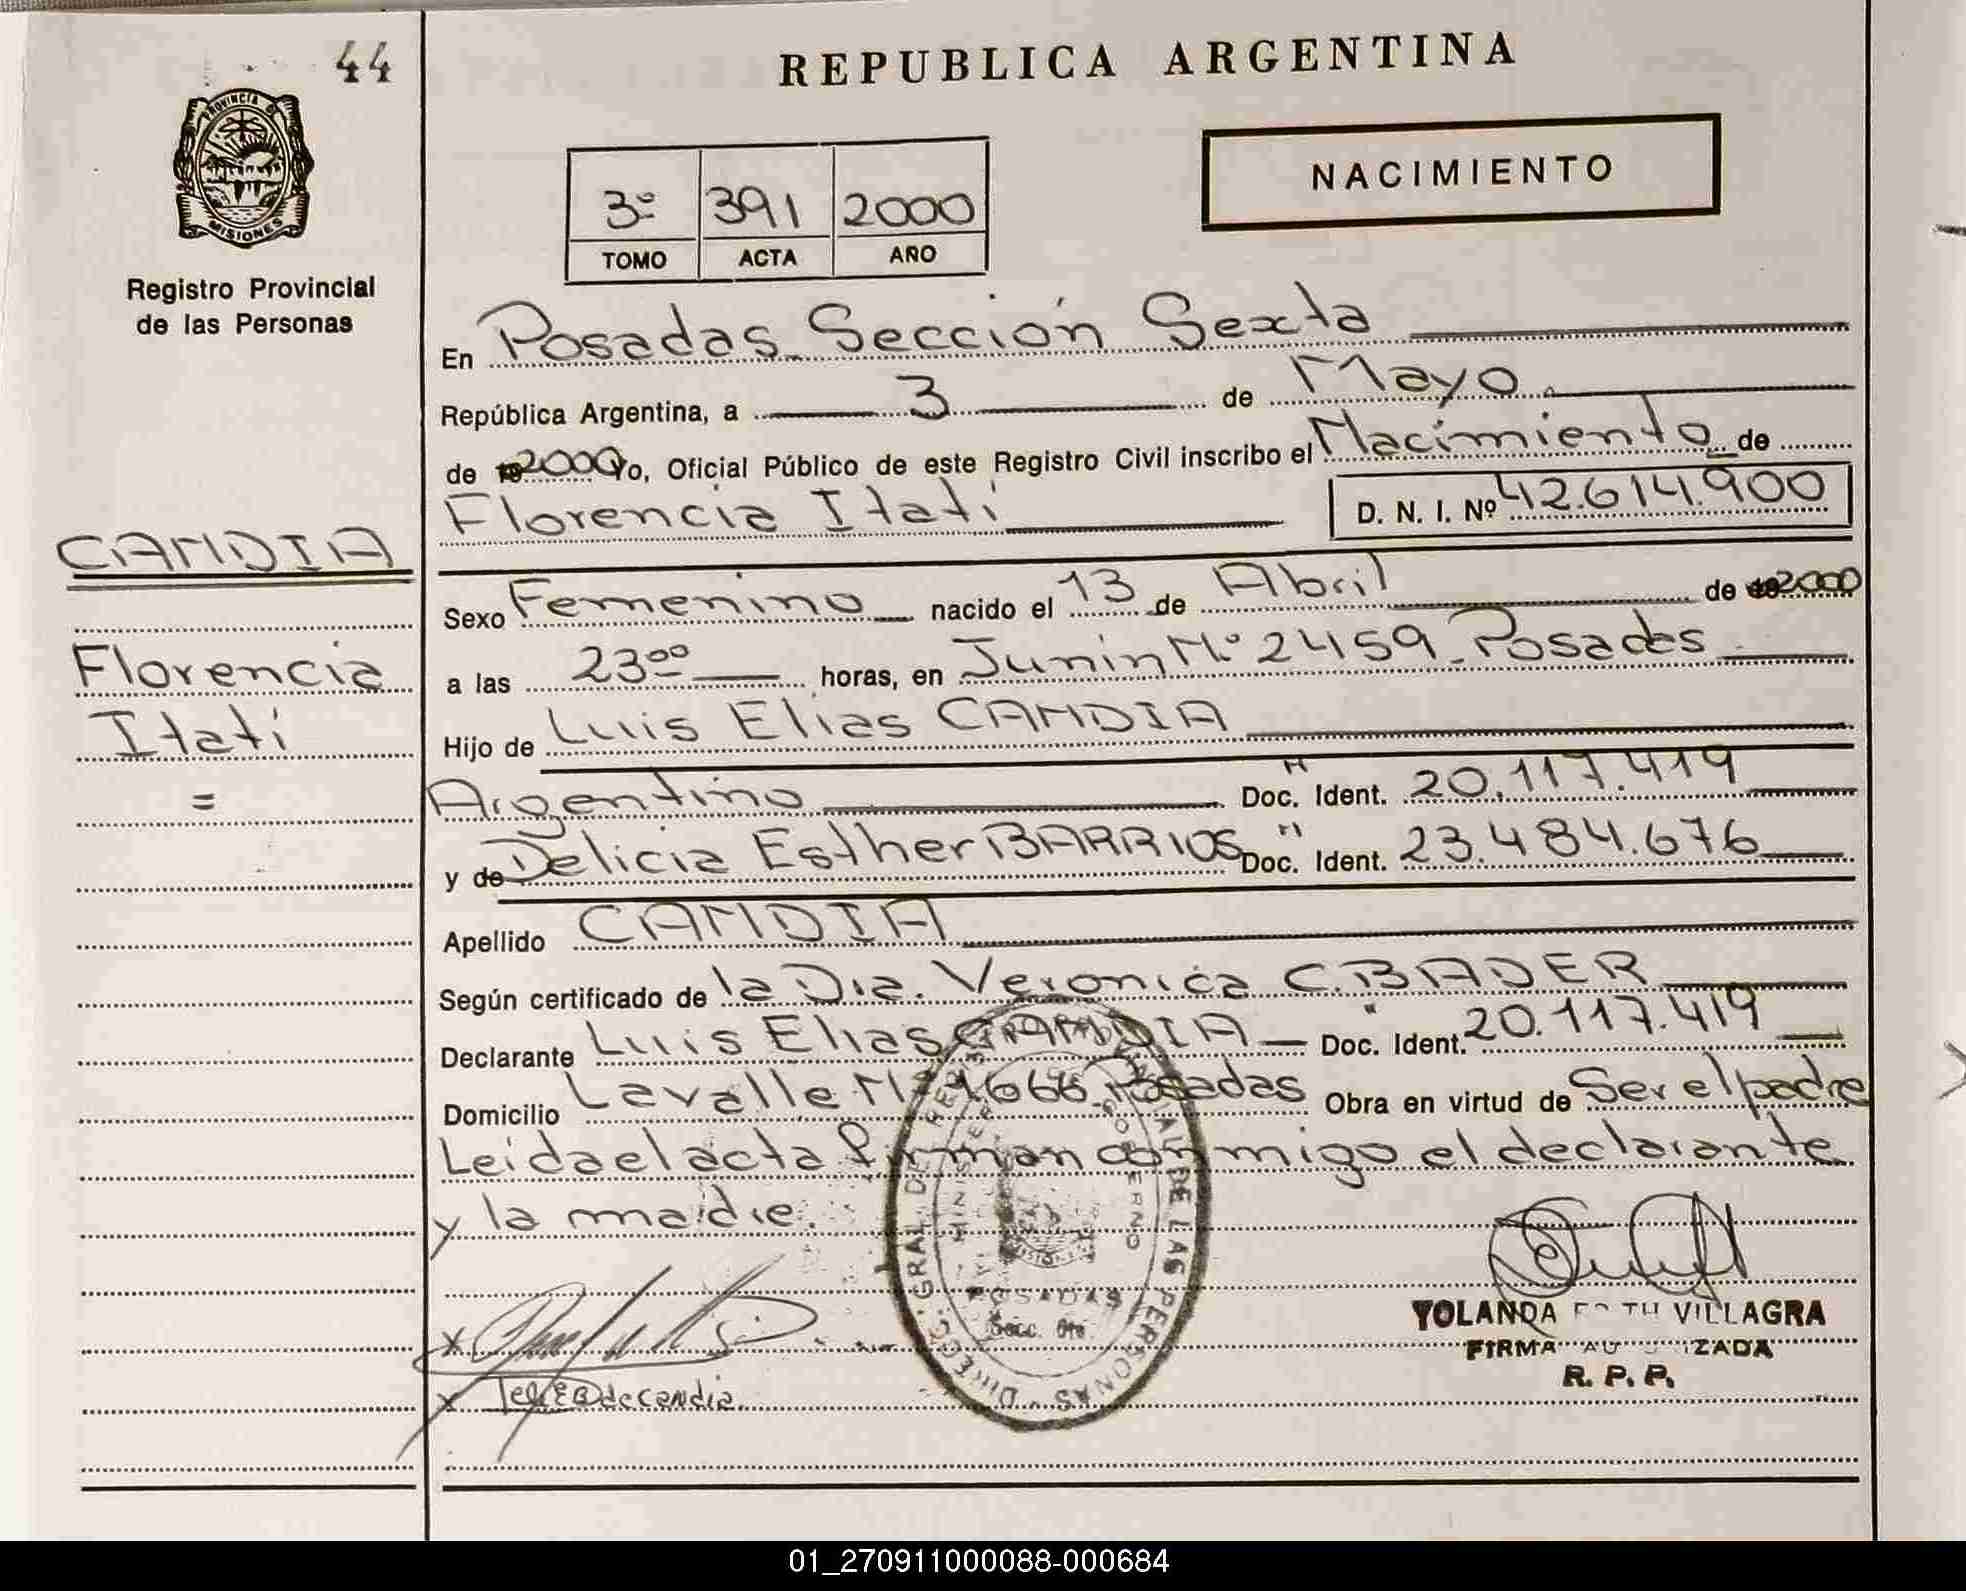 44
REPUBLICA ARGENTINA
PROVINCIA DE
MISIONES
Registro Provincial
de las Personas
3º 391 2000
TOMO ACTA AÑO
NACIMIENTO
En Posadas Sección Sexta
República Argentina, a 3 de Mayo
de 2000 Yo, Oficial Público de este Registro Civil inscribo el Nacimiento de
Florencia Itatí D. N. I. Nº 42.614.900
CANDIA
Florencia
Itatí
=
Sexo Femenino nacido el 13 de Abril de 2000
a las 23⁰⁰ horas, en Junín Nº 2459 Posadas
Hijo de Luis Elias CANDIA
Argentino Doc. Ident. 20.117.419
y de Delicia Esther BARRIOS " Doc. Ident. 23.484.676
Apellido CANDIA
Según certificado de la Dra. Veronica C. BADER
Declarante Luis Elias CANDIA Doc. Ident. 20.117.419
Domicilio Lavalle Nº 1666 Posadas Obra en virtud de Ser el padre
Leida el acta firman conmigo el declarante
y la madre.
DIRECC. GRAL. DE LAS PERSONAS
POSADAS
Secc. 6ta.
YOLANDA VILLAGRA
FIRMA
R. P. P.
de Candia
01_270911000088-000684